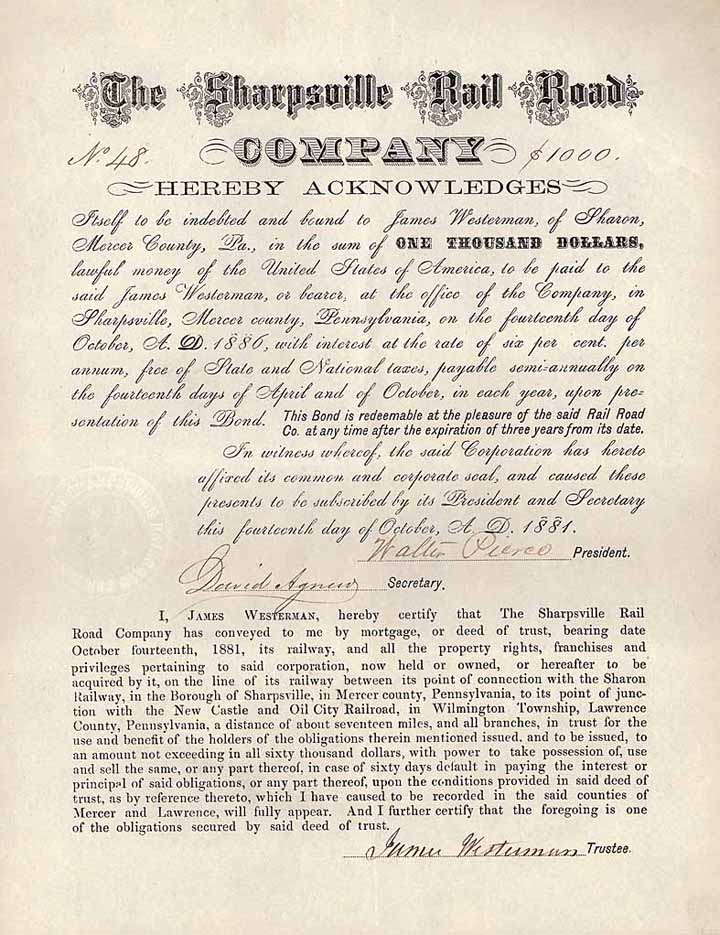 The Sharpsville Rail Road
No. 48. COMPANY $1000.
HEREBY ACKNOWLEDGES
Itself to be indebted and bound to James Westerman, of Sharon,
Mercer County, Pa., in the sum of ONE THOUSAND DOLLARS,
lawful money of the United States of America, to be paid to the
said James Westerman, or bearer, at the office of the Company, in
Sharpsville, Mercer county, Pennsylvania, on the fourteenth day of
October, A. D. 1886, with interest at the rate of six per cent. per
annum, free of State and National taxes, payable semi-annually on
the fourteenth days of April and of October, in each year, upon pre-
sentation of this Bond. This Bond is redeemable at the pleasure of the said Rail Road
Co. at any time after the expiration of three years from its date.
In witness whereof, the said Corporation has hereto
affixed its common and corporate seal, and caused these
presents to be subscribed by its President and Secretary
this fourteenth day of October, A. D. 1881.
Walter Pierce President.
David Agnew Secretary.
I, JAMES WESTERMAN, hereby certify that The Sharpsville Rail
Road Company has conveyed to me by mortgage, or deed of trust, bearing date
October fourteenth, 1881, its railway, and all the property rights, franchises and
privileges pertaining to said corporation, now held or owned, or hereafter to be
acquired by it, on the line of its railway between its point of connection with the Sharon
Railway, in the Borough of Sharpsville, in Mercer county, Pennsylvania, to its point of junc-
tion with the New Castle and Oil City Railroad, in Wilmington Township, Lawrence
County, Pennsylvania, a distance of about seventeen miles, and all branches, in trust for the
use and benefit of the holders of the obligations therein mentioned issued. and to be issued, to
an amount not exceeding in all sixty thousand dollars, with power to take possession of, use
and sell the same, or any part thereof, in case of sixty days default in paying the interest or
principal of said obligations, or any part thereof, upon the conditions provided in said deed of
trust, as by reference thereto, which I have caused to be recorded in the said counties of
Mercer and Lawrence, will fully appear. And I further certify that the foregoing is one
of the obligations secured by said deed of trust.
James Westerman Trustee.